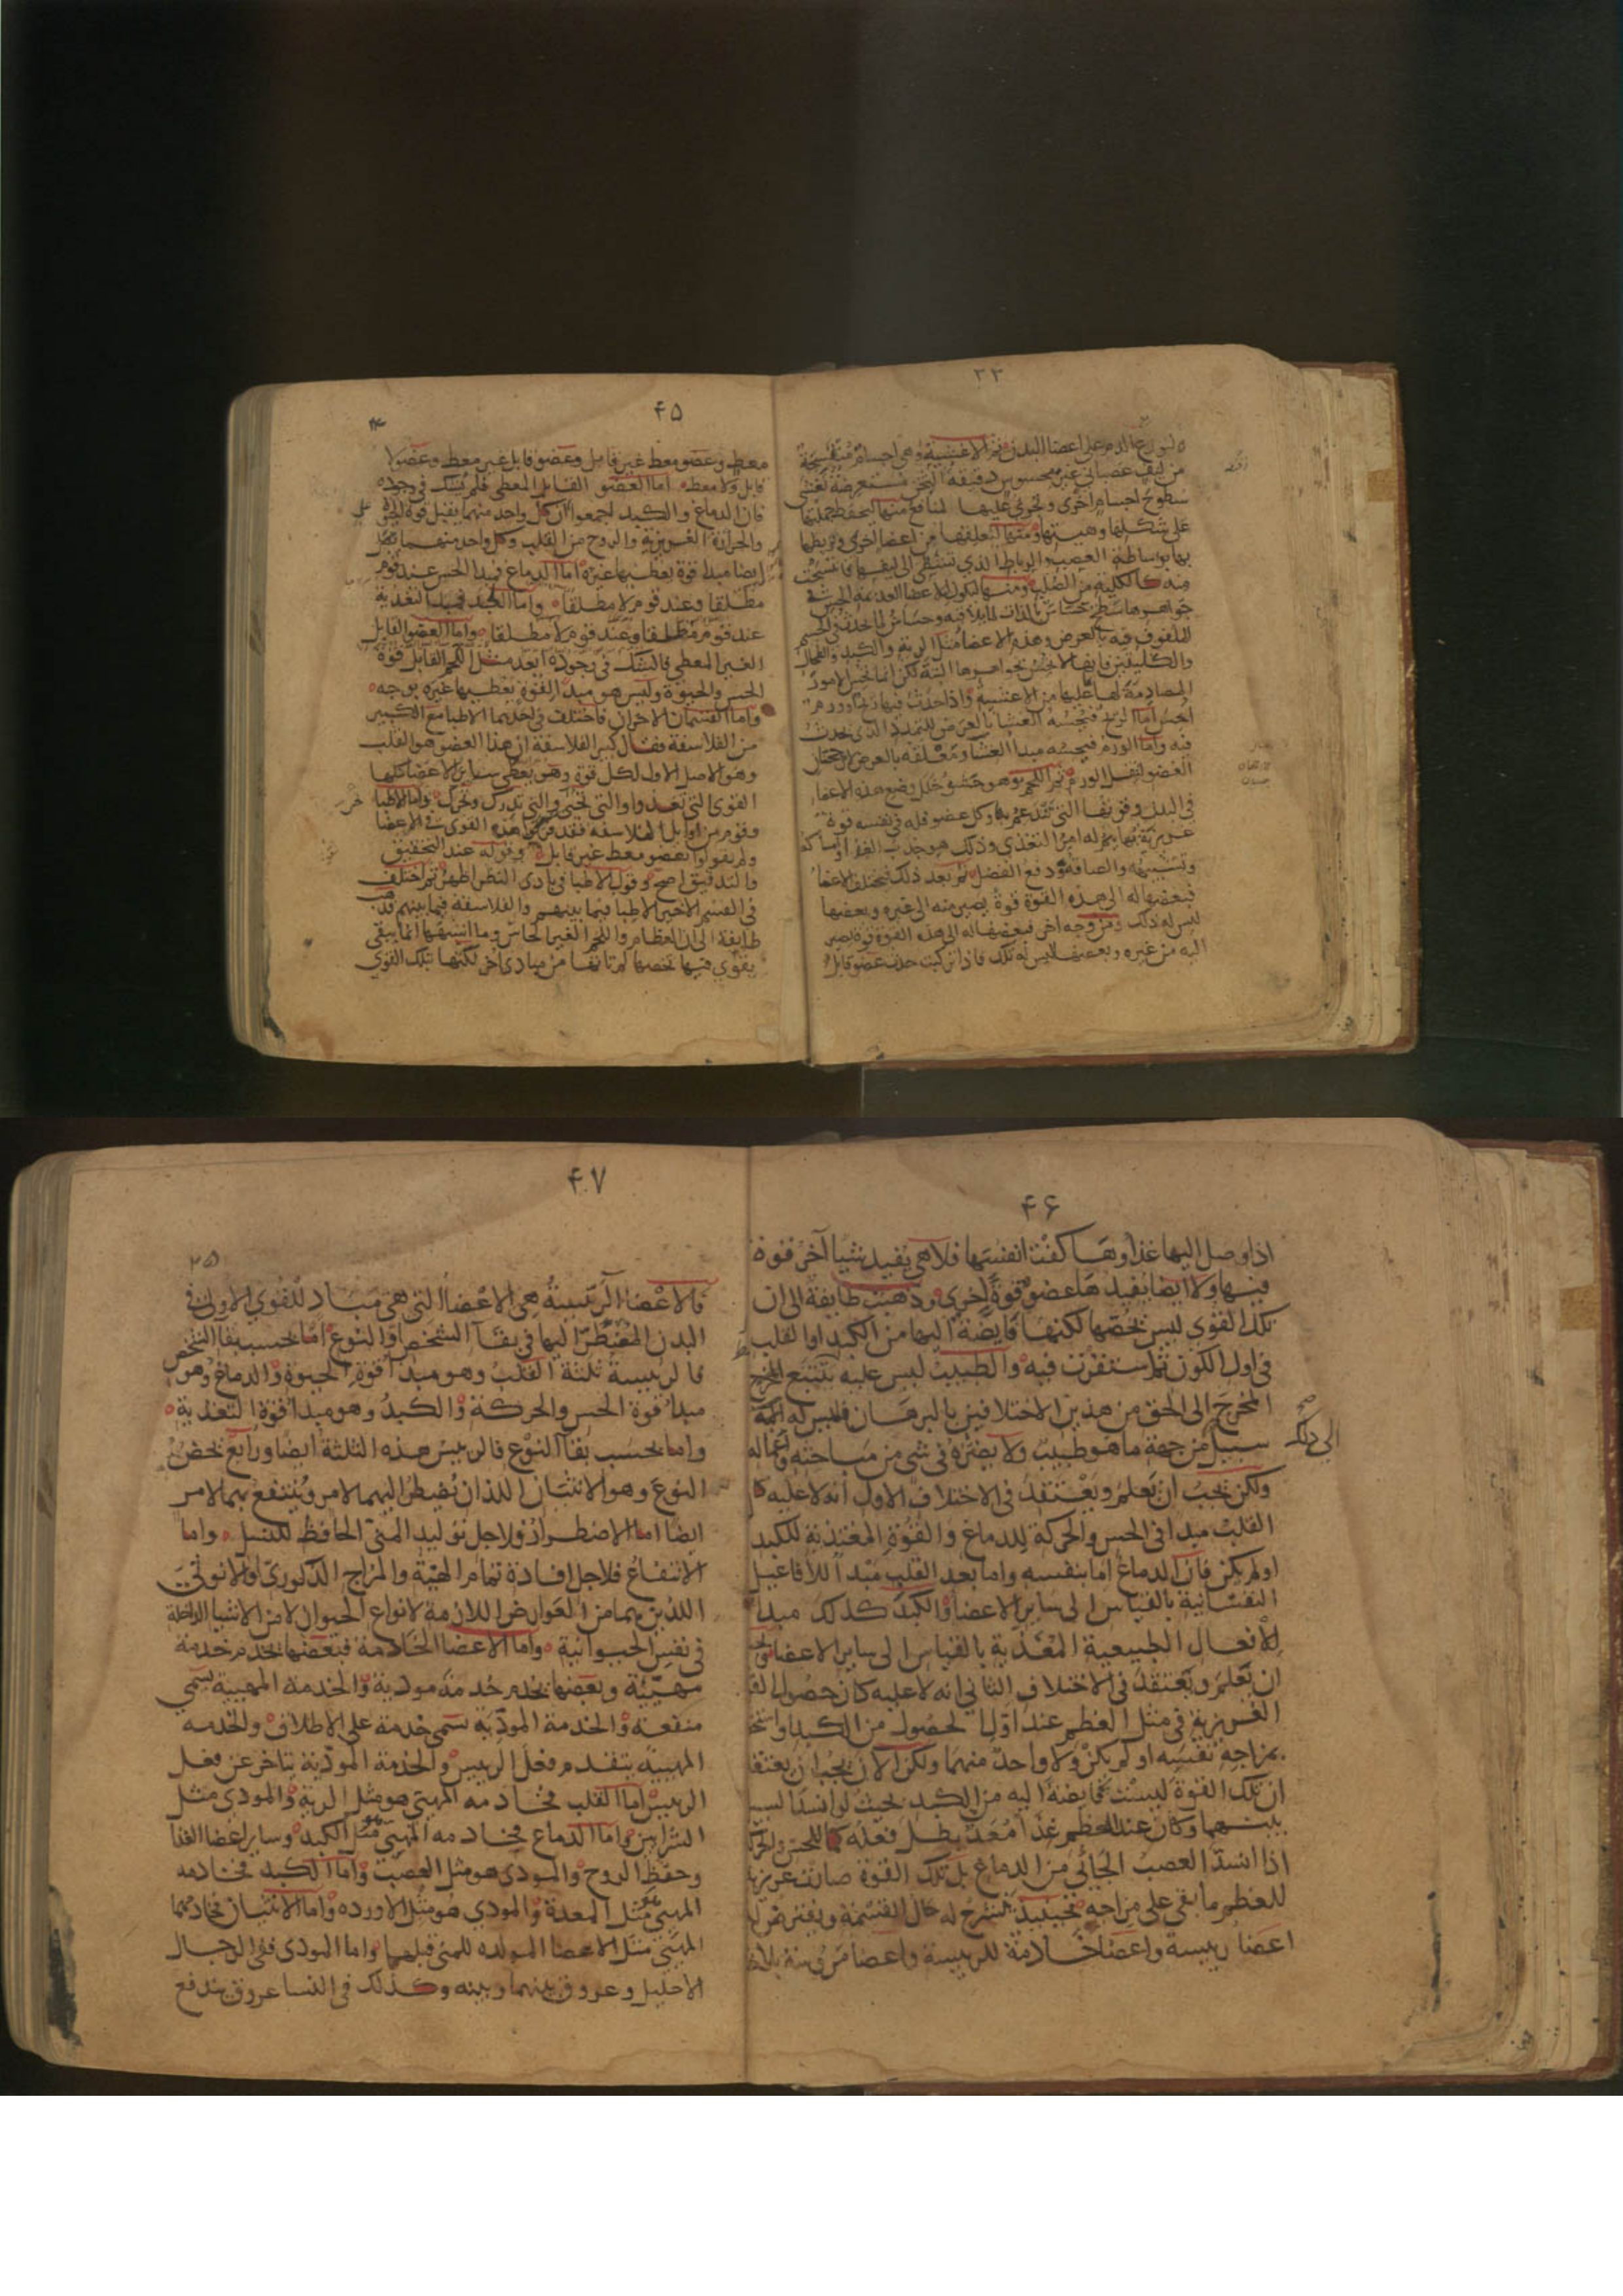 ۲۳
ليوزع الدم على اعضا البدن ثم الاغشية وهى اجسام منتسجة
من ليف عصبانى غير محسوس دقيقة الثخن مستعرضة تغشى
سطوح اجسام اخرى وتحوى عليها لمنافع منها لتحفظ جملتها
على شكلها وهيئتها ومنها لتعليقها من اعضا اخرى وتربطها
بها بوساطة العصب والرباط الذى تشظى الى ليفها فانتسجت
منه كالكلية من الصلب ومنها ليكون للاعضا العديمة الحس فى
جواهرها سطح حساس بالذات لما يلاقيه وحساس لما يحدث فى الجسم
الملفوف فيه بالعرض وهذه الاعضا مثل الرية والكبد والطحال
والكليتين فانها لا تحس بجواهرها البتة لكن انما تحس الامور
المصادمة لها بما عليها من الاغشية واذا حدث فيها ريح او ورم
احس اما الريح فيحسه الغشا بالعرض للتمدد الذى يحدث
فيه واما الورم فيحسه مبدا الغشا ومتعلقه بالعرض لارجحنان
العضو لثقل الورم ثم اللحم وهو حشو خلل وضع هذه الاعضا
فى البدن وقوتها التى تعتمد به وكل عضو فله فى نفسه قوة
غريزية بها يتم له امر التغذى وذلك هو جذب الغذا وامساكه
وتشبيهه والصاقه ودفع الفضل ثم بعد ذلك تختلف الاعضا
فبعضها له الى هذه القوة قوة تصير منه الى غيره وبعضها
ليس له ذلك ومن وجه اخر فبعضها له الى هذه القوة قوة تصير
اليه من غيره وبعضها ليس له تلك فاذا تركبت حدث عضو قابل
۴۵
معطٍ وعضو معط غير قابل وعضو قابل غير معط وعضو لا
قابل ولا معط اما العضو القابل المعطى فلم يشك فى وجوده
فان الدماغ والكبد اجمعوا ان كل واحد منهما يقبل قوة الحيوة
والحرارة الغريزية والروح من القلب وكل واحد منهما
ايضا مبدا قوة يعطيها غيره اما الدماغ فمبدا الحس عند قوم
مطلقا وعند قوم لا مطلقا واما الكبد فمبدا التغذية
عند قوم مطلقا وعند قوم لا مطلقا واما العضو القابل
الغير المعطى فالشك فى وجوده ابعد مثل اللحم القابل قوة
الحس والحيوة وليس هو مبدا لقوة يعطيها غيره بوجه
واما القسمان الاخران فاختلف فى احدهما الاطبا مع الكبير
من الفلاسفة فقال كبير الفلاسفة ان هذا العضو هو القلب
وهو الاصل الاول لكل قوة وهو يعطى ساير الاعضا كلها
القوى التى تغذوا والتى تحيى والتى تدرك وتحرك واما الاطبا
وقوم من اوايل الفلاسفة فقد فرقوا هذه القوى فى الاعضا
ولم يقولوا بعضو معط غير قابل وقوله عند التحقيق
والتدقيق اصح وقول الاطبا فى بادى النظر اظهر ثم اختلف
فى القسم الاخير الاطبا فيما بينهم والفلاسفة فيما بينهم فذهب
طايفة الى ان العظام واللحم الغير الحاس وما اشبهها انما يبقى
بقوى فيها تخصها لم تاتها من مبادى اخر لكنها بتلك القوى
۴۶
اذا وصل اليها غذاوها كفت انفسها فلا هى يفيد شيا آخر قوة
فيها ولا ايضا يفيدها عضو قوة اخرى وذهبت طايفة الى ان
تلك القوى ليس تخصها لكنها فايضة اليها من الكبد او القلب
فى اول الكون ثم استقرت فيه والطبيب ليس عليه يتتبع المخرج
المخرج الى الحق من هذين الاختلافين بالبرهان فليس له اليه
الى ذلك
سبيل من جهة ما هو طبيب ولا يضره فى شى من مباحثه واعماله
ولكن يجب ان يعلم ويعتقد فى الاختلاف الاول انه لا عليه كان
القلب مبدا فى الحس والحركة للدماغ والقوة المغتذية للكبد
اولم يكن فان الدماغ اما بنفسه واما بعد القلب مبدا للافاعيل
النفسانية بالقياس الى ساير الاعضا والكبد كذلك مبدا
للافعال الطبيعية المغذية بالقياس الى ساير الاعضا ويجب
ان يعلم ويعتقد فى الاختلاف الثانى انه لا عليه كان حصول القوة
الغريزية فى مثل العظم عند اول الحصول من الكبد او استحق
بمزاجه نفسه او لم يكن ولا واحد منهما ولكن الآن يجب ان يعتقد
ان تلك القوة ليست فايضة اليه من الكبد بحيث لو انسد السبيل
بينهما وكان عند العظم غذا معد بطل فعله كما للحس والحركة
اذا انسد العصب الجائى من الدماغ بل تلك القوة صارت غريزية
للعظم ما بقى على مزاجه فحينيذ ينشرح له حال القسمة ويفترض له
اعضا رييسة واعضا خادمة للرييسة واعضا مرؤسة بلا
۴۷
۲۵
فالاعضا الرئيسة هى الاعضا التى هى مباد للقوى الاولى فى
البدن المضطر اليها فى بقا الشخص او النوع اما بحسب بقا الشخص
فالرييسة ثلثة القلب وهو مبدا قوة الحيوة والدماغ وهو
مبدا قوة الحس والحركة والكبد وهو مبدا قوة التغذية
واما بحسب بقا النوع فالرييس هذه الثلثة ايضا ورابع يخص
النوع وهو الانثيان اللذان يضطر اليهما لامر وينتفع بهما لامر
ايضا اما الاضطرار فلاجل توليد المنى الحافظ للنسل واما
الانتفاع فلاجل افادة تمام الهيئة والمزاج الذكورى والانوثى
اللذين هما من العوارض اللازمة لانواع الحيوان لا من الاشيا الداخلة
فى نفس الحيوانية واما الاعضا الخادمة فبعضها يخدم خدمة
مهيئة وبعضها يخدم خدمة مودية والخدمة المهيية تسمى
منفعة والخدمة المودية تسمى خدمة على الاطلاق والخدمه
المهيية يتقدم فعل الرييس والخدمة المودية يتاخر عن فعل
الرييس اما القلب فخادمه المهيى هو مثل الرية والمودى مثل
الشرايين واما الدماغ فخادمه المهيى هو مثل الكبد وساير اعضا الغذا
وحفظ الروح والمودى هو مثل العصب واما الكبد فخادمه
المهيى هو مثل المعدة والمودى هو مثل الاورده واما الانثيان فخادمهما
المهيى مثل الاعضا المولده للمنى قبلهما واما المودى ففى الرجال
الاحليل وعروق بينهما وبينه وكذلك فى النسا عروق يندفع